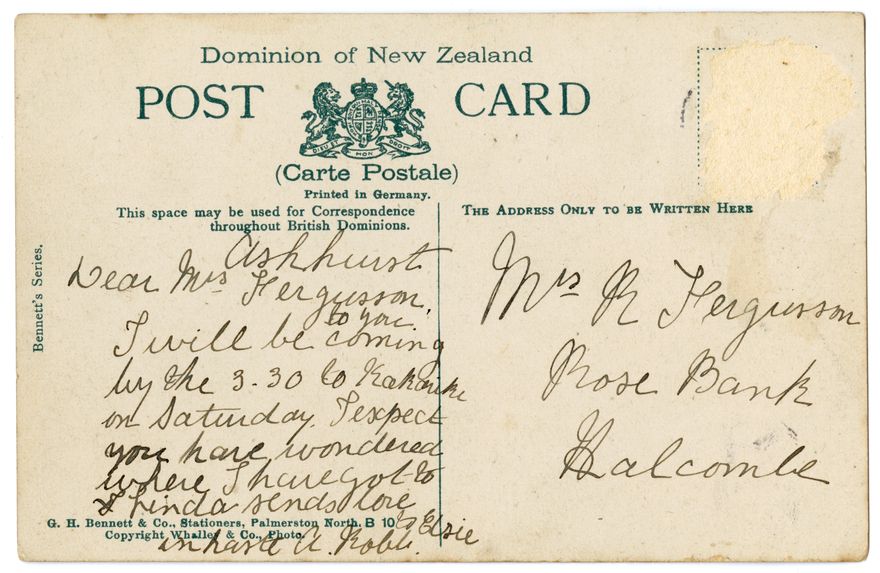 Dominion of New Zealand
POST CARD
DIEU ET MON DROIT
(Carte Postale)
Printed in Germany.
This space may be used for Correspondence
throughout British Dominions.
THE ADDRESS ONLY TO BE WRITTEN HERE
Bennett's Series.
Ashhurst
Dear Mrs Fergusson,
to you
I will be coming
by the 3-30 to Kakariki
on Saturday. I expect
you have wondered
where I have got to
& Linda sends love
to Elsie
in haste A. Robb.
G. H. Bennett & Co., Stationers, Palmerston North. B 10
Copyright Whalley & Co., Photo.
Mrs R Fergusson
Rose Bank
Halcombe